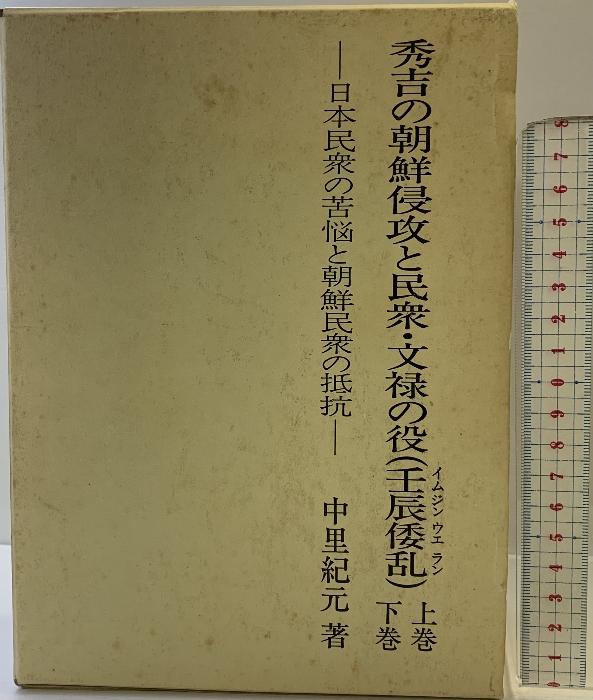 秀吉の朝鮮侵攻と民衆・文禄の役(壬辰倭乱)
イムジン ウエ ラン
上巻
下巻
―日本民衆の苦悩と朝鮮民衆の抵抗―
中里紀元 著
8
7
6
5
4
3
2
1
0
9
8
7
6
5
4
3
2
1
0